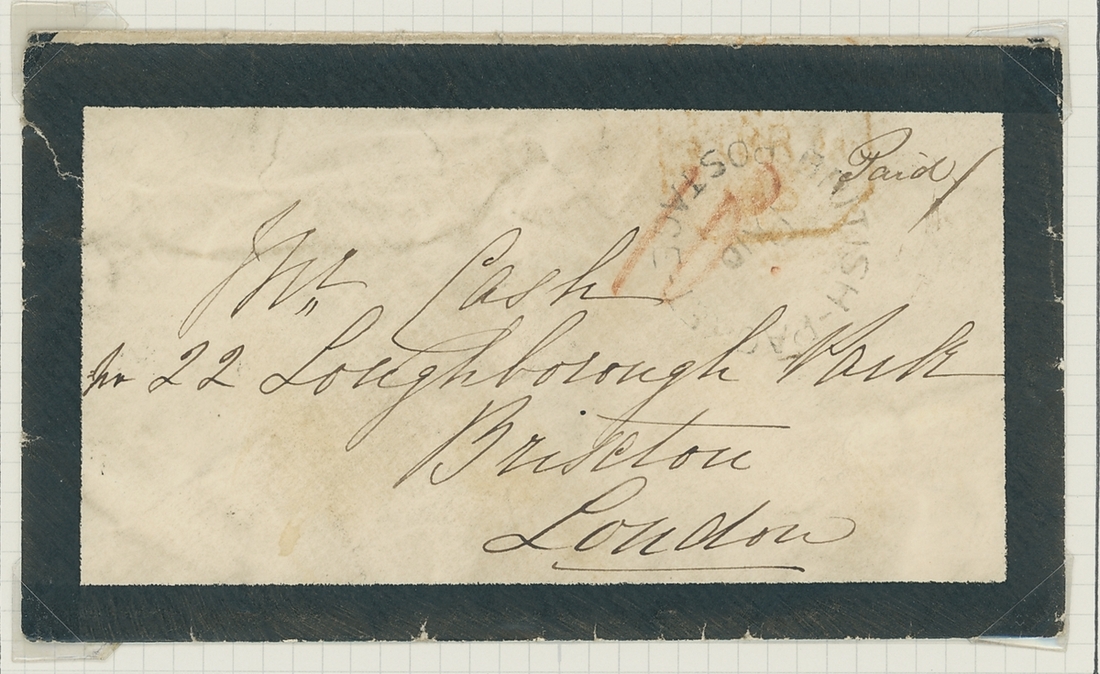 Paid
Mr Cash
No 22 Loughborough Park
Brixton
London
POSTAGE
BRITISH-PACKET